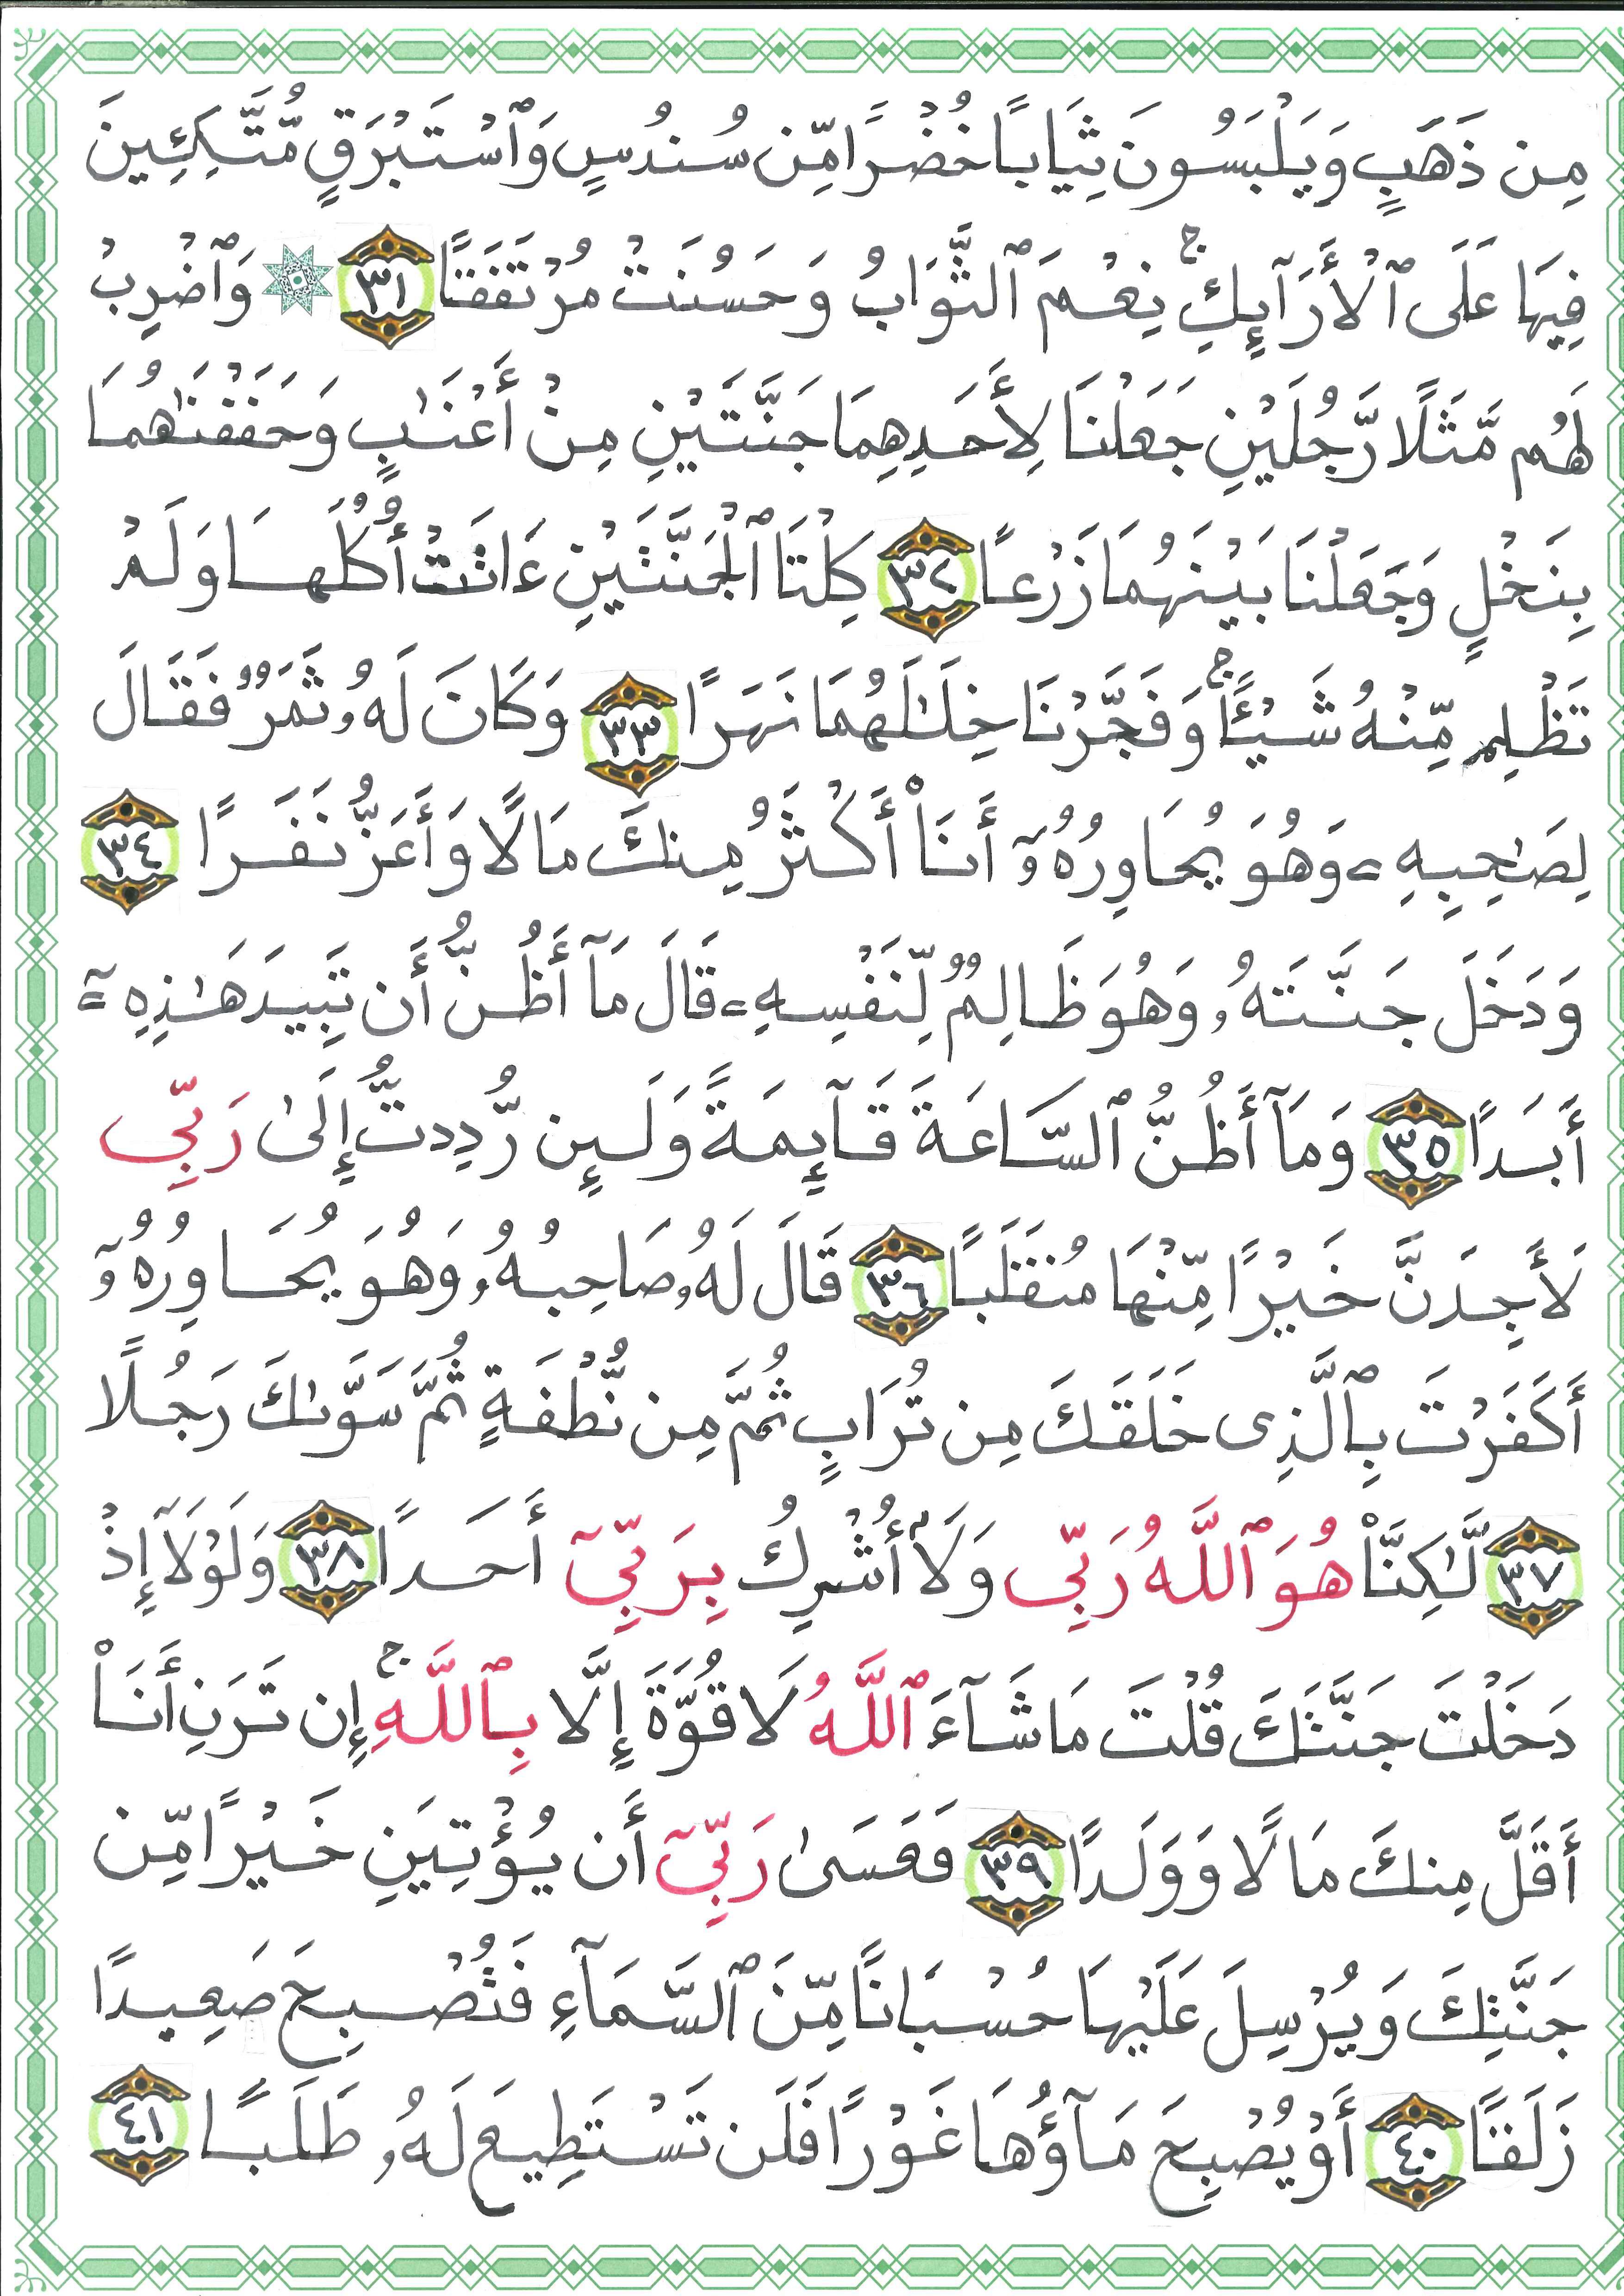 مِن ذَهَبٍ وَيَلْبَسُونَ ثِيَابًا خُضْرًا مِّن سُندُسٍ وَٱسْتَبْرَقٍ مُّتَّكِـِٔينَ
فِيهَا عَلَى ٱلْأَرَآئِكِ ۚ نِعْمَ ٱلثَّوَابُ وَحَسُنَتْ مُرْتَفَقًا ٣١ ۞ وَٱضْرِبْ
لَهُم مَّثَلًا رَّجُلَيْنِ جَعَلْنَا لِأَحَدِهِمَا جَنَّتَيْنِ مِنْ أَعْنَـٰبٍ وَحَفَفْنَـٰهُمَا
بِنَخْلٍ وَجَعَلْنَا بَيْنَهُمَا زَرْعًا ٣٢ كِلْتَا ٱلْجَنَّتَيْنِ ءَاتَتْ أُكُلَهَا وَلَمْ
تَظْلِم مِّنْهُ شَيْـًٔا ۚ وَفَجَّرْنَا خِلَـٰلَهُمَا نَهَرًا ٣٣ وَكَانَ لَهُۥ ثَمَرٌ فَقَالَ
لِصَـٰحِبِهِۦ وَهُوَ يُحَاوِرُهُۥٓ أَنَا۠ أَكْثَرُ مِنكَ مَالًا وَأَعَزُّ نَفَرًا ٣٤
وَدَخَلَ جَنَّتَهُۥ وَهُوَ ظَالِمٌ لِّنَفْسِهِۦ قَالَ مَآ أَظُنُّ أَن تَبِيدَ هَـٰذِهِۦٓ
أَبَدًا ٣٥ وَمَآ أَظُنُّ ٱلسَّاعَةَ قَآئِمَةً وَلَئِن رُّدِدتُّ إِلَىٰ رَبِّى
لَأَجِدَنَّ خَيْرًا مِّنْهَا مُنقَلَبًا ٣٦ قَالَ لَهُۥ صَاحِبُهُۥ وَهُوَ يُحَاوِرُهُۥٓ
أَكَفَرْتَ بِٱلَّذِى خَلَقَكَ مِن تُرَابٍ ثُمَّ مِن نُّطْفَةٍ ثُمَّ سَوَّىٰكَ رَجُلًا
٣٧ لَّـٰكِنَّا۠ هُوَ ٱللَّهُ رَبِّى وَلَآ أُشْرِكُ بِرَبِّىٓ أَحَدًا ٣٨ وَلَوْلَآ إِذْ
دَخَلْتَ جَنَّتَكَ قُلْتَ مَا شَآءَ ٱللَّهُ لَا قُوَّةَ إِلَّا بِٱللَّهِ ۚ إِن تَرَنِ أَنَا۠
أَقَلَّ مِنكَ مَالًا وَوَلَدًا ٣٩ فَعَسَىٰ رَبِّىٓ أَن يُؤْتِيَنِ خَيْرًا مِّن
جَنَّتِكَ وَيُرْسِلَ عَلَيْهَا حُسْبَانًا مِّنَ ٱلسَّمَآءِ فَتُصْبِحَ صَعِيدًا
زَلَقًا ٤٠ أَوْ يُصْبِحَ مَآؤُهَا غَوْرًا فَلَن تَسْتَطِيعَ لَهُۥ طَلَبًا ٤١